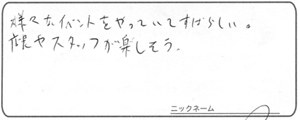 様々なイベントをやっていてすばらしい。
店長やスタッフが楽しそう.
ニックネーム